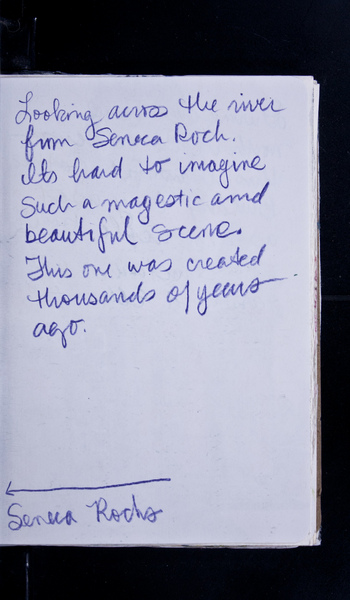 Looking across the river
from Seneca Rock.
Its hard to imagine
Such a magestic and
beautiful scene.
This one was created
thousands of years
ago.
Seneca Rocks